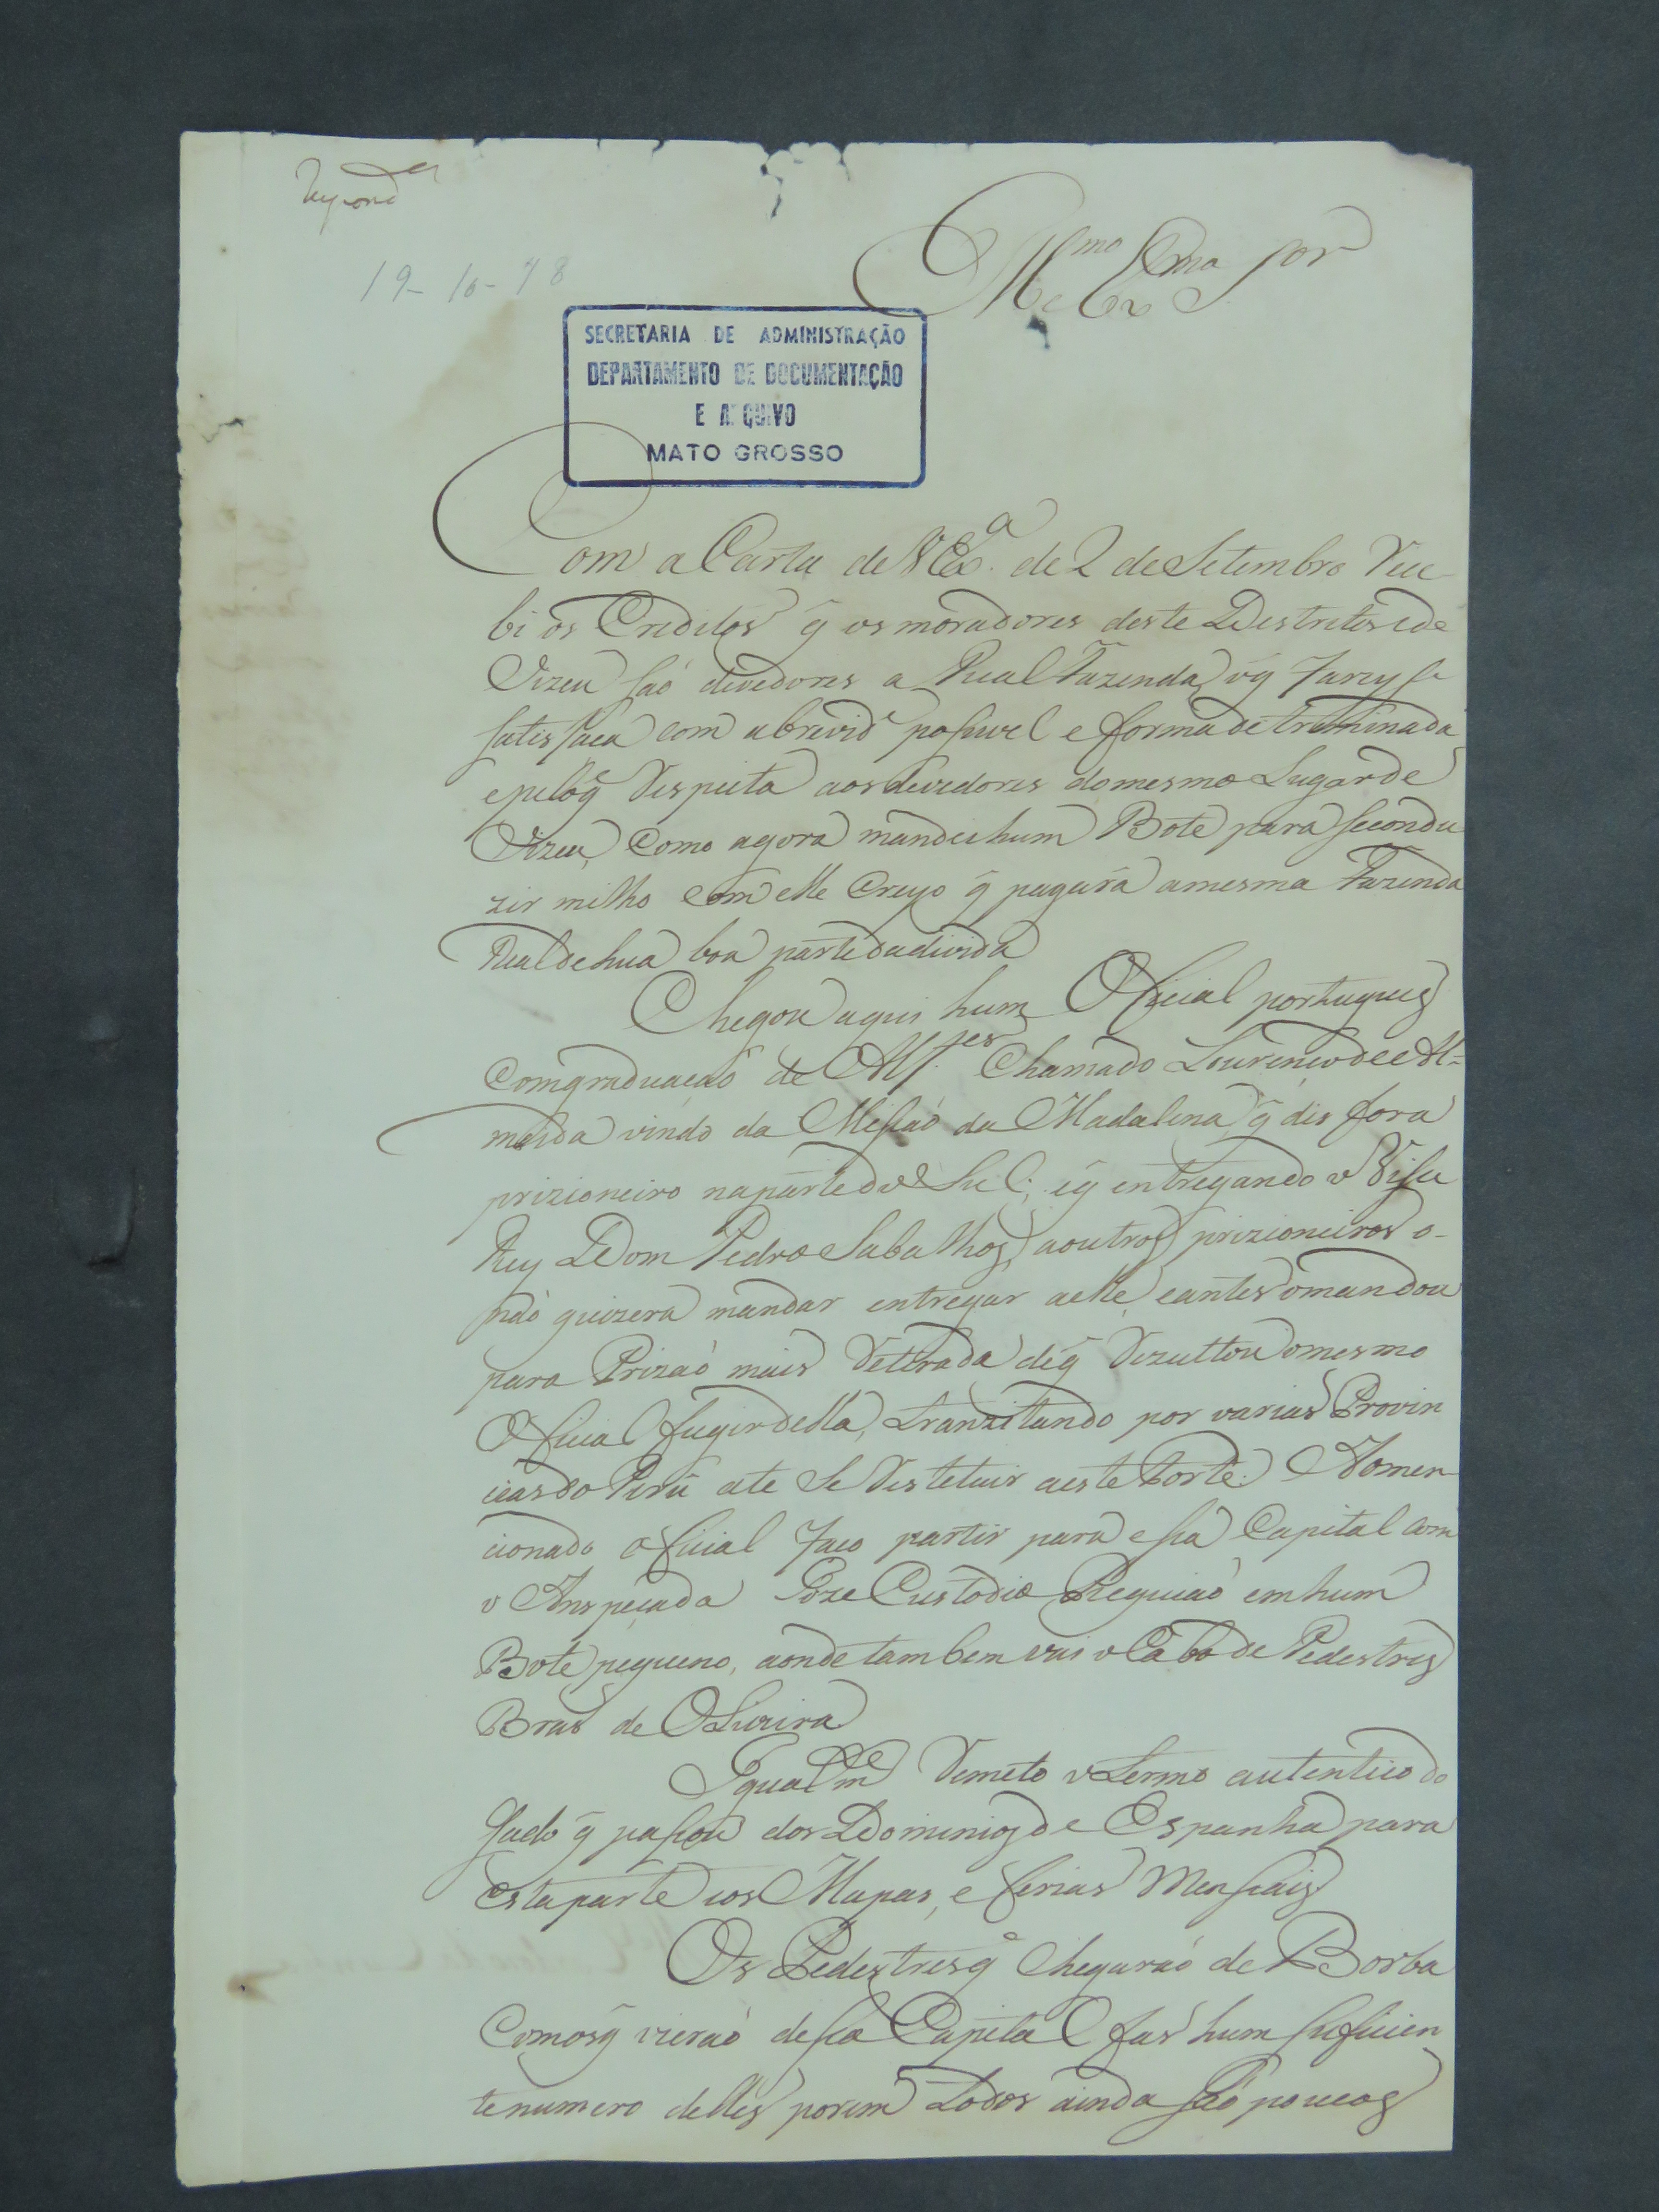 Respond.da
19-10-78
Ill.mo e Ex.mo Snr
SECRETARIA DE ADMINISTRAÇÃO
DEPARTAMENTO DE DOCUMENTAÇÃO
E ARQUIVO
MATO GROSSO
Com a Carta de V Ex.a de 2 de Setembro Rece
bi os Creditos q̃ os moradores deste Destrito e de
Vizeu saó devedores a Real Fazenda, o q̃ farey se
satisfaça com a brevid.e posivel e forma detreminada
e pelo q̃ Respeita aos devedores do mesmo Lugar de
Vizeu, Como agora mandei hum Bote para se condu
zir milho com elle Creyo q̃ pagará a mesma Fazenda
Real de hua boa parte da divida
Chegou aqui hum Oficial portugues
com graduacaó de Alf.res Chamado Lourenco de Al=
meida vindo da Misaó da Madalena q̃ dis fora
prizioneiro na parte do Sul; e q̃ entregando o Vise
Rey Dom Pedro Sabalhos, a outros prizioneiros o
naó quizera mandar entregar a elle, e antes o mandou
para Prizaó mais Retirada de q̃ Rezultou o mesmo
Oficial fugir della, tranzitando por varias Provin
cias do Perú ate se Restetuir a este Forte. O Ao men
cionado oficial faco partir para esa Capital com
o Anspeçada Joze Custodio Requiaó em hum
Bote pequeno, aonde tambem vai o Cabo de Pedestres
Bras de Oliveira
Igualm.te Remeto o Termo autentico do
Gado q̃ pasou dos Dominios de Espanha para
esta parte e os Mapas, e ferias Mensais
Os Pedestres q̃ Chegaraó de Borba
Com os q̃ vieraó desa Capital fas hum suficien
te numero delles porem todos ainda saó poucos